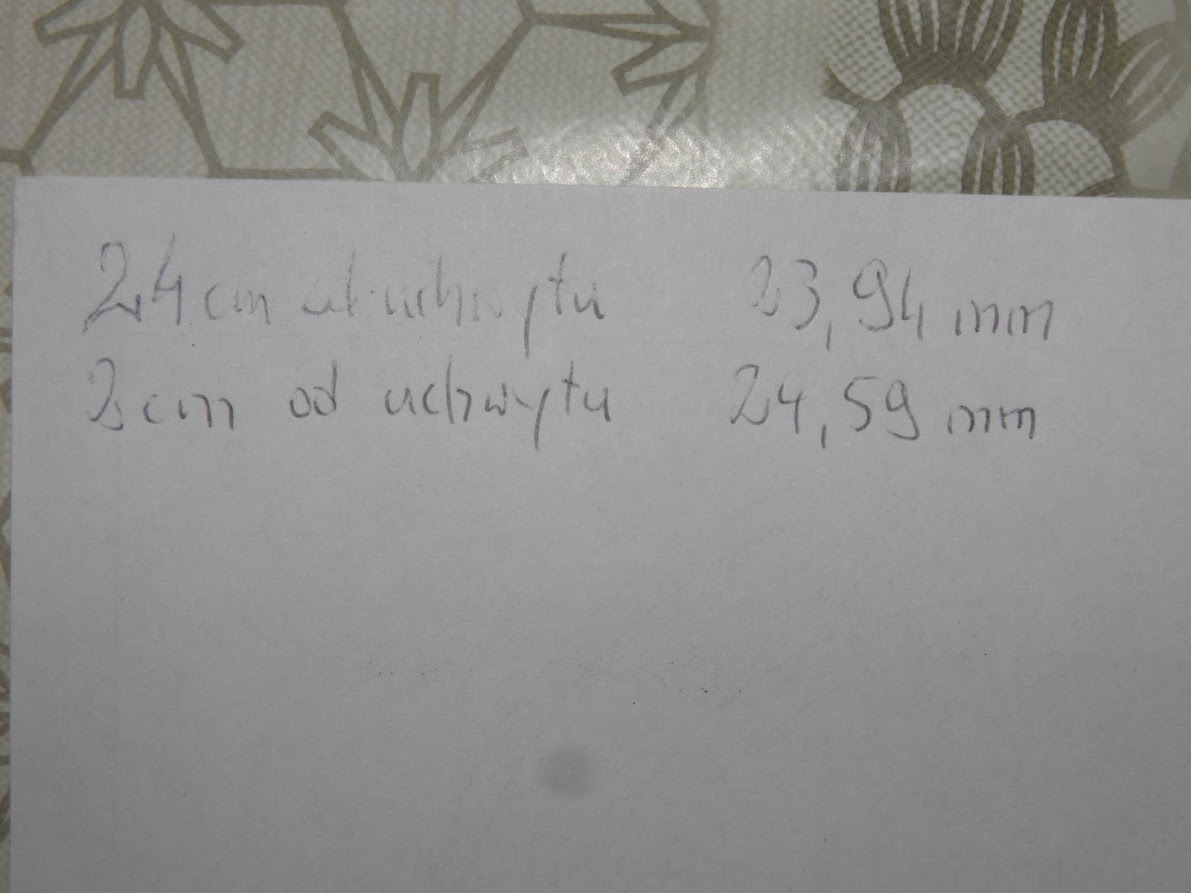 24cm od uchwytu 23,94 mm
2cm od uchwytu 24,59 mm